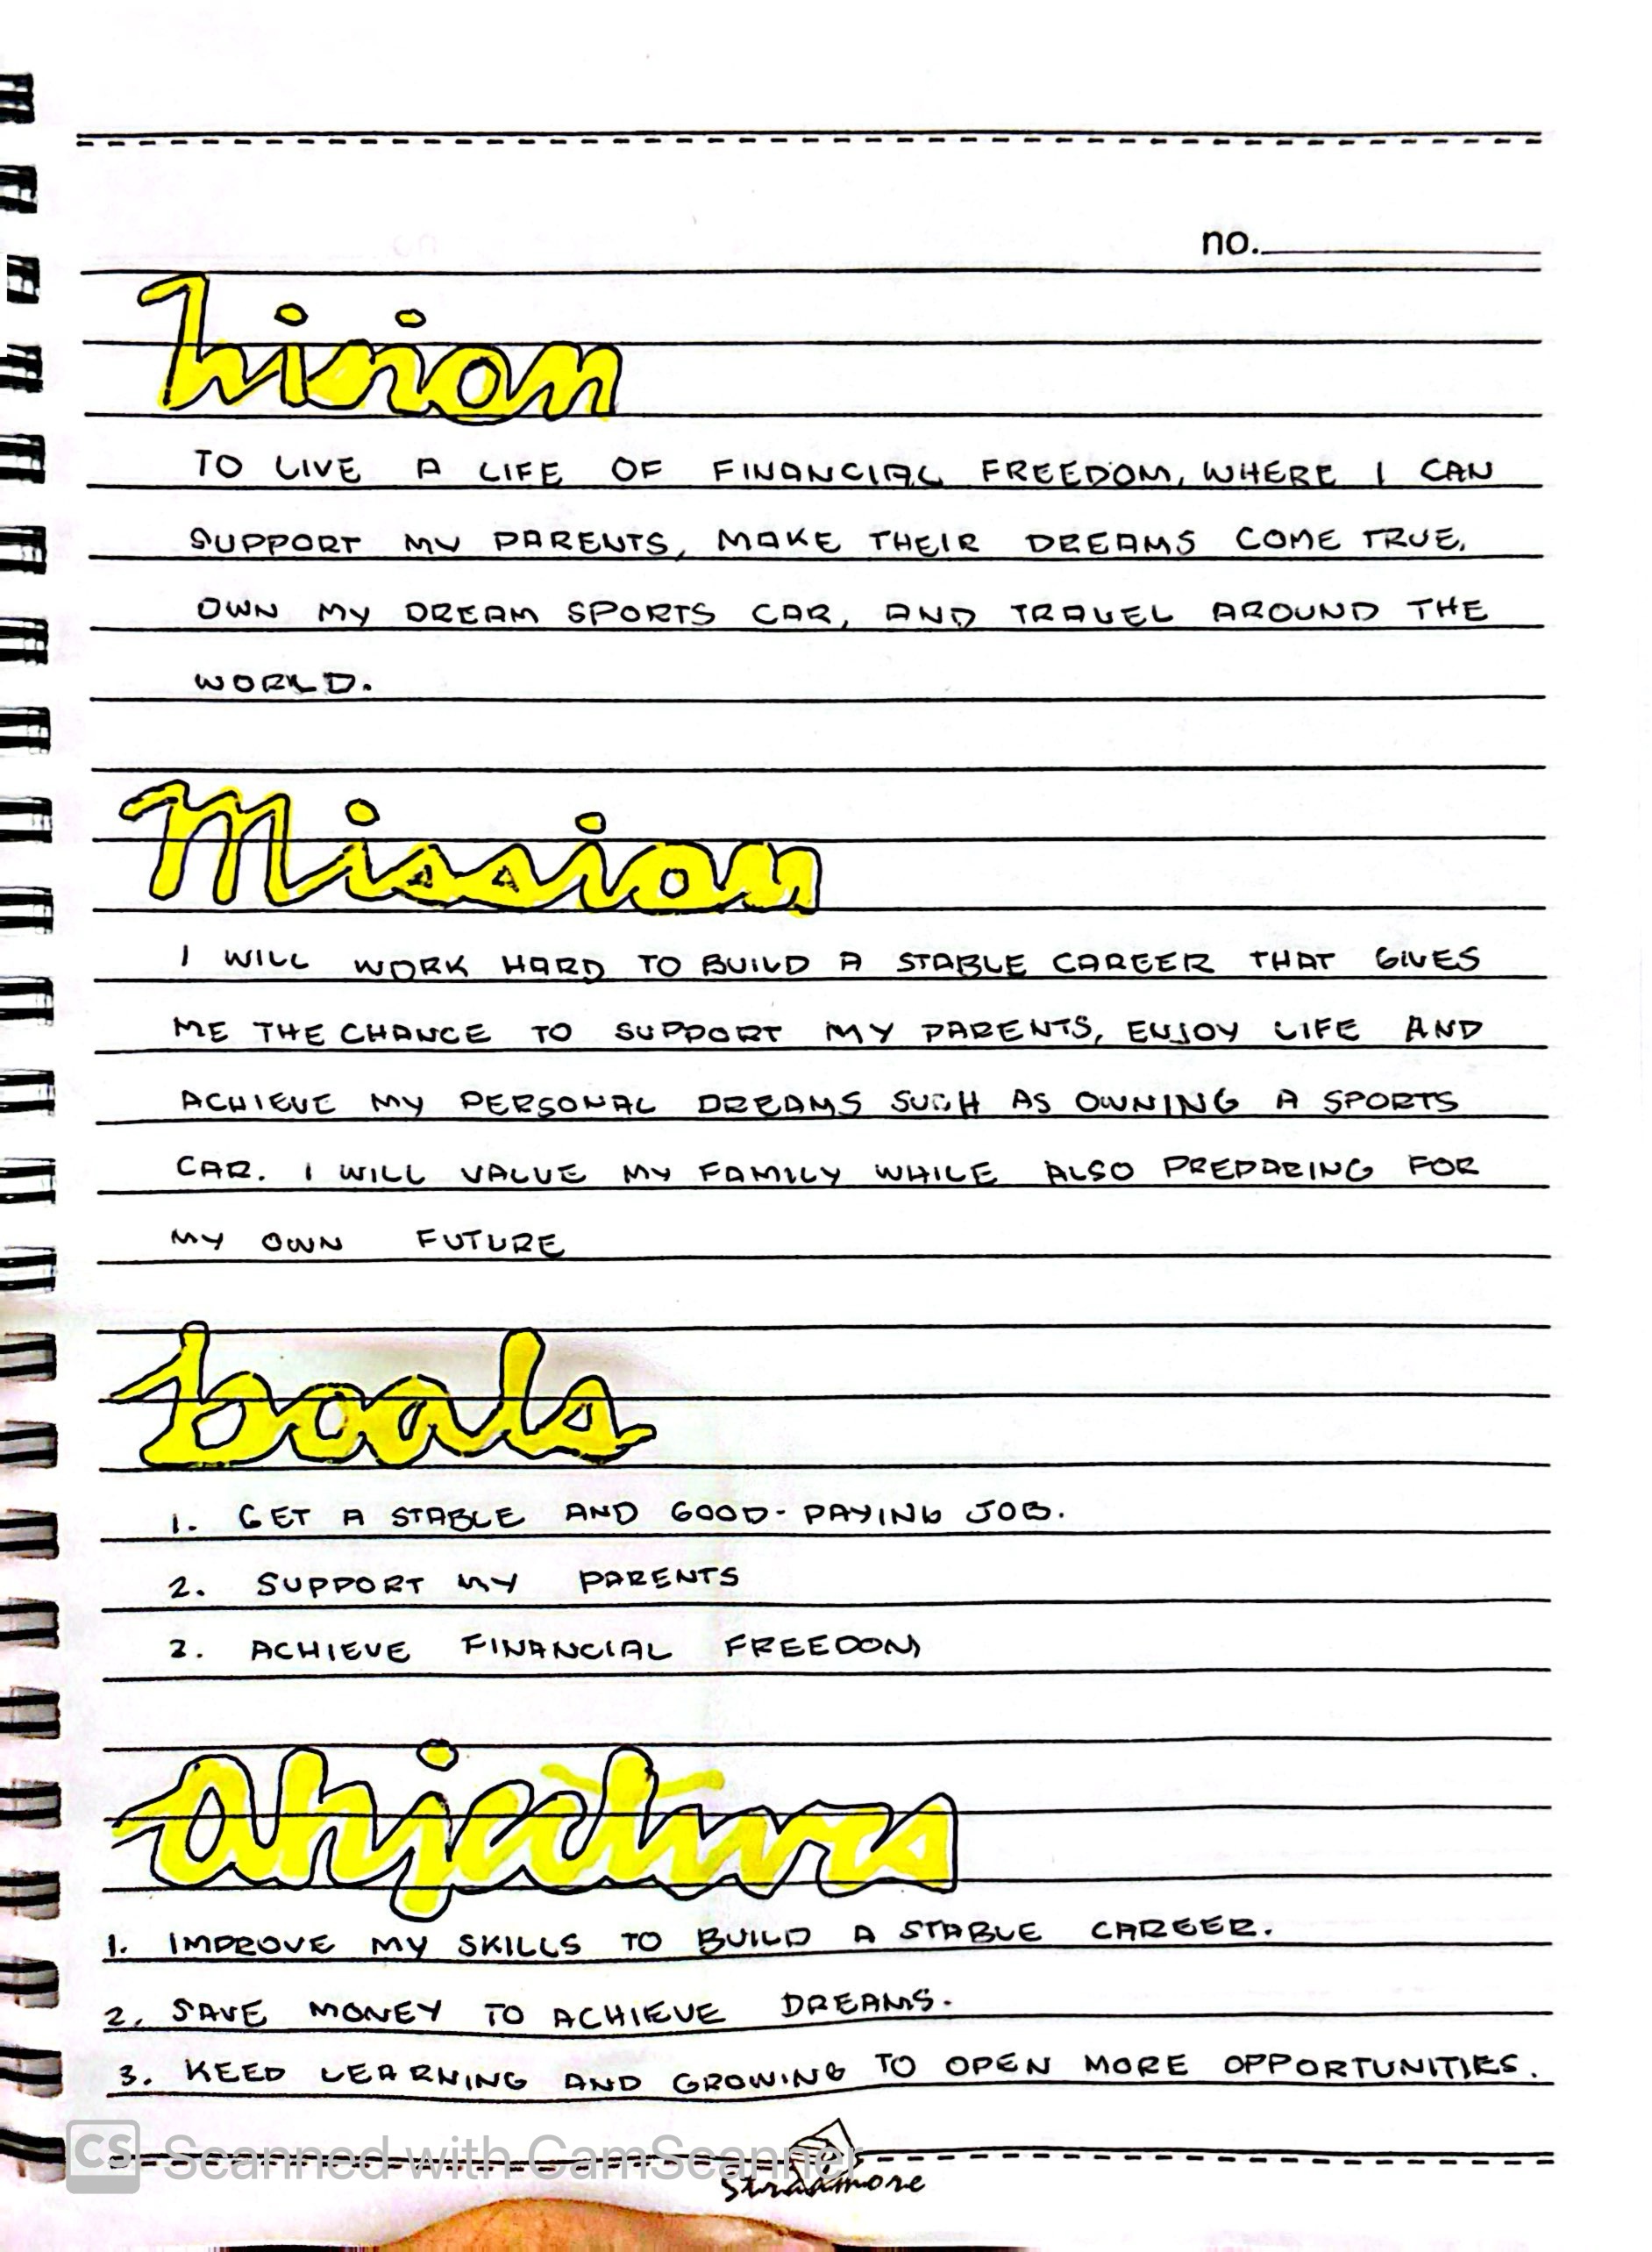 no.
Vision
TO LIVE A LIFE OF FINANCIAL FREEDOM, WHERE I CAN
SUPPORT MY PARENTS, MAKE THEIR DREAMS COME TRUE,
OWN MY DREAM SPORTS CAR, AND TRAVEL AROUND THE
WORLD.
Mission
I WILL WORK HARD TO BUILD A STABLE CAREER THAT GIVES
ME THE CHANCE TO SUPPORT MY PARENTS, ENJOY LIFE AND
ACHIEVE MY PERSONAL DREAMS SUCH AS OWNING A SPORTS
CAR. I WILL VALUE MY FAMILY WHILE ALSO PREPARING FOR
MY OWN FUTURE
Goals
1. GET A STABLE AND GOOD-PAYING JOB.
2. SUPPORT MY PARENTS
3. ACHIEVE FINANCIAL FREEDOM
Objectives
1. IMPROVE MY SKILLS TO BUILD A STABLE CAREER.
2. SAVE MONEY TO ACHIEVE DREAMS.
3. KEEP LEARNING AND GROWING TO OPEN MORE OPPORTUNITIES.
CS Scanned with CamScanner
Stradmore